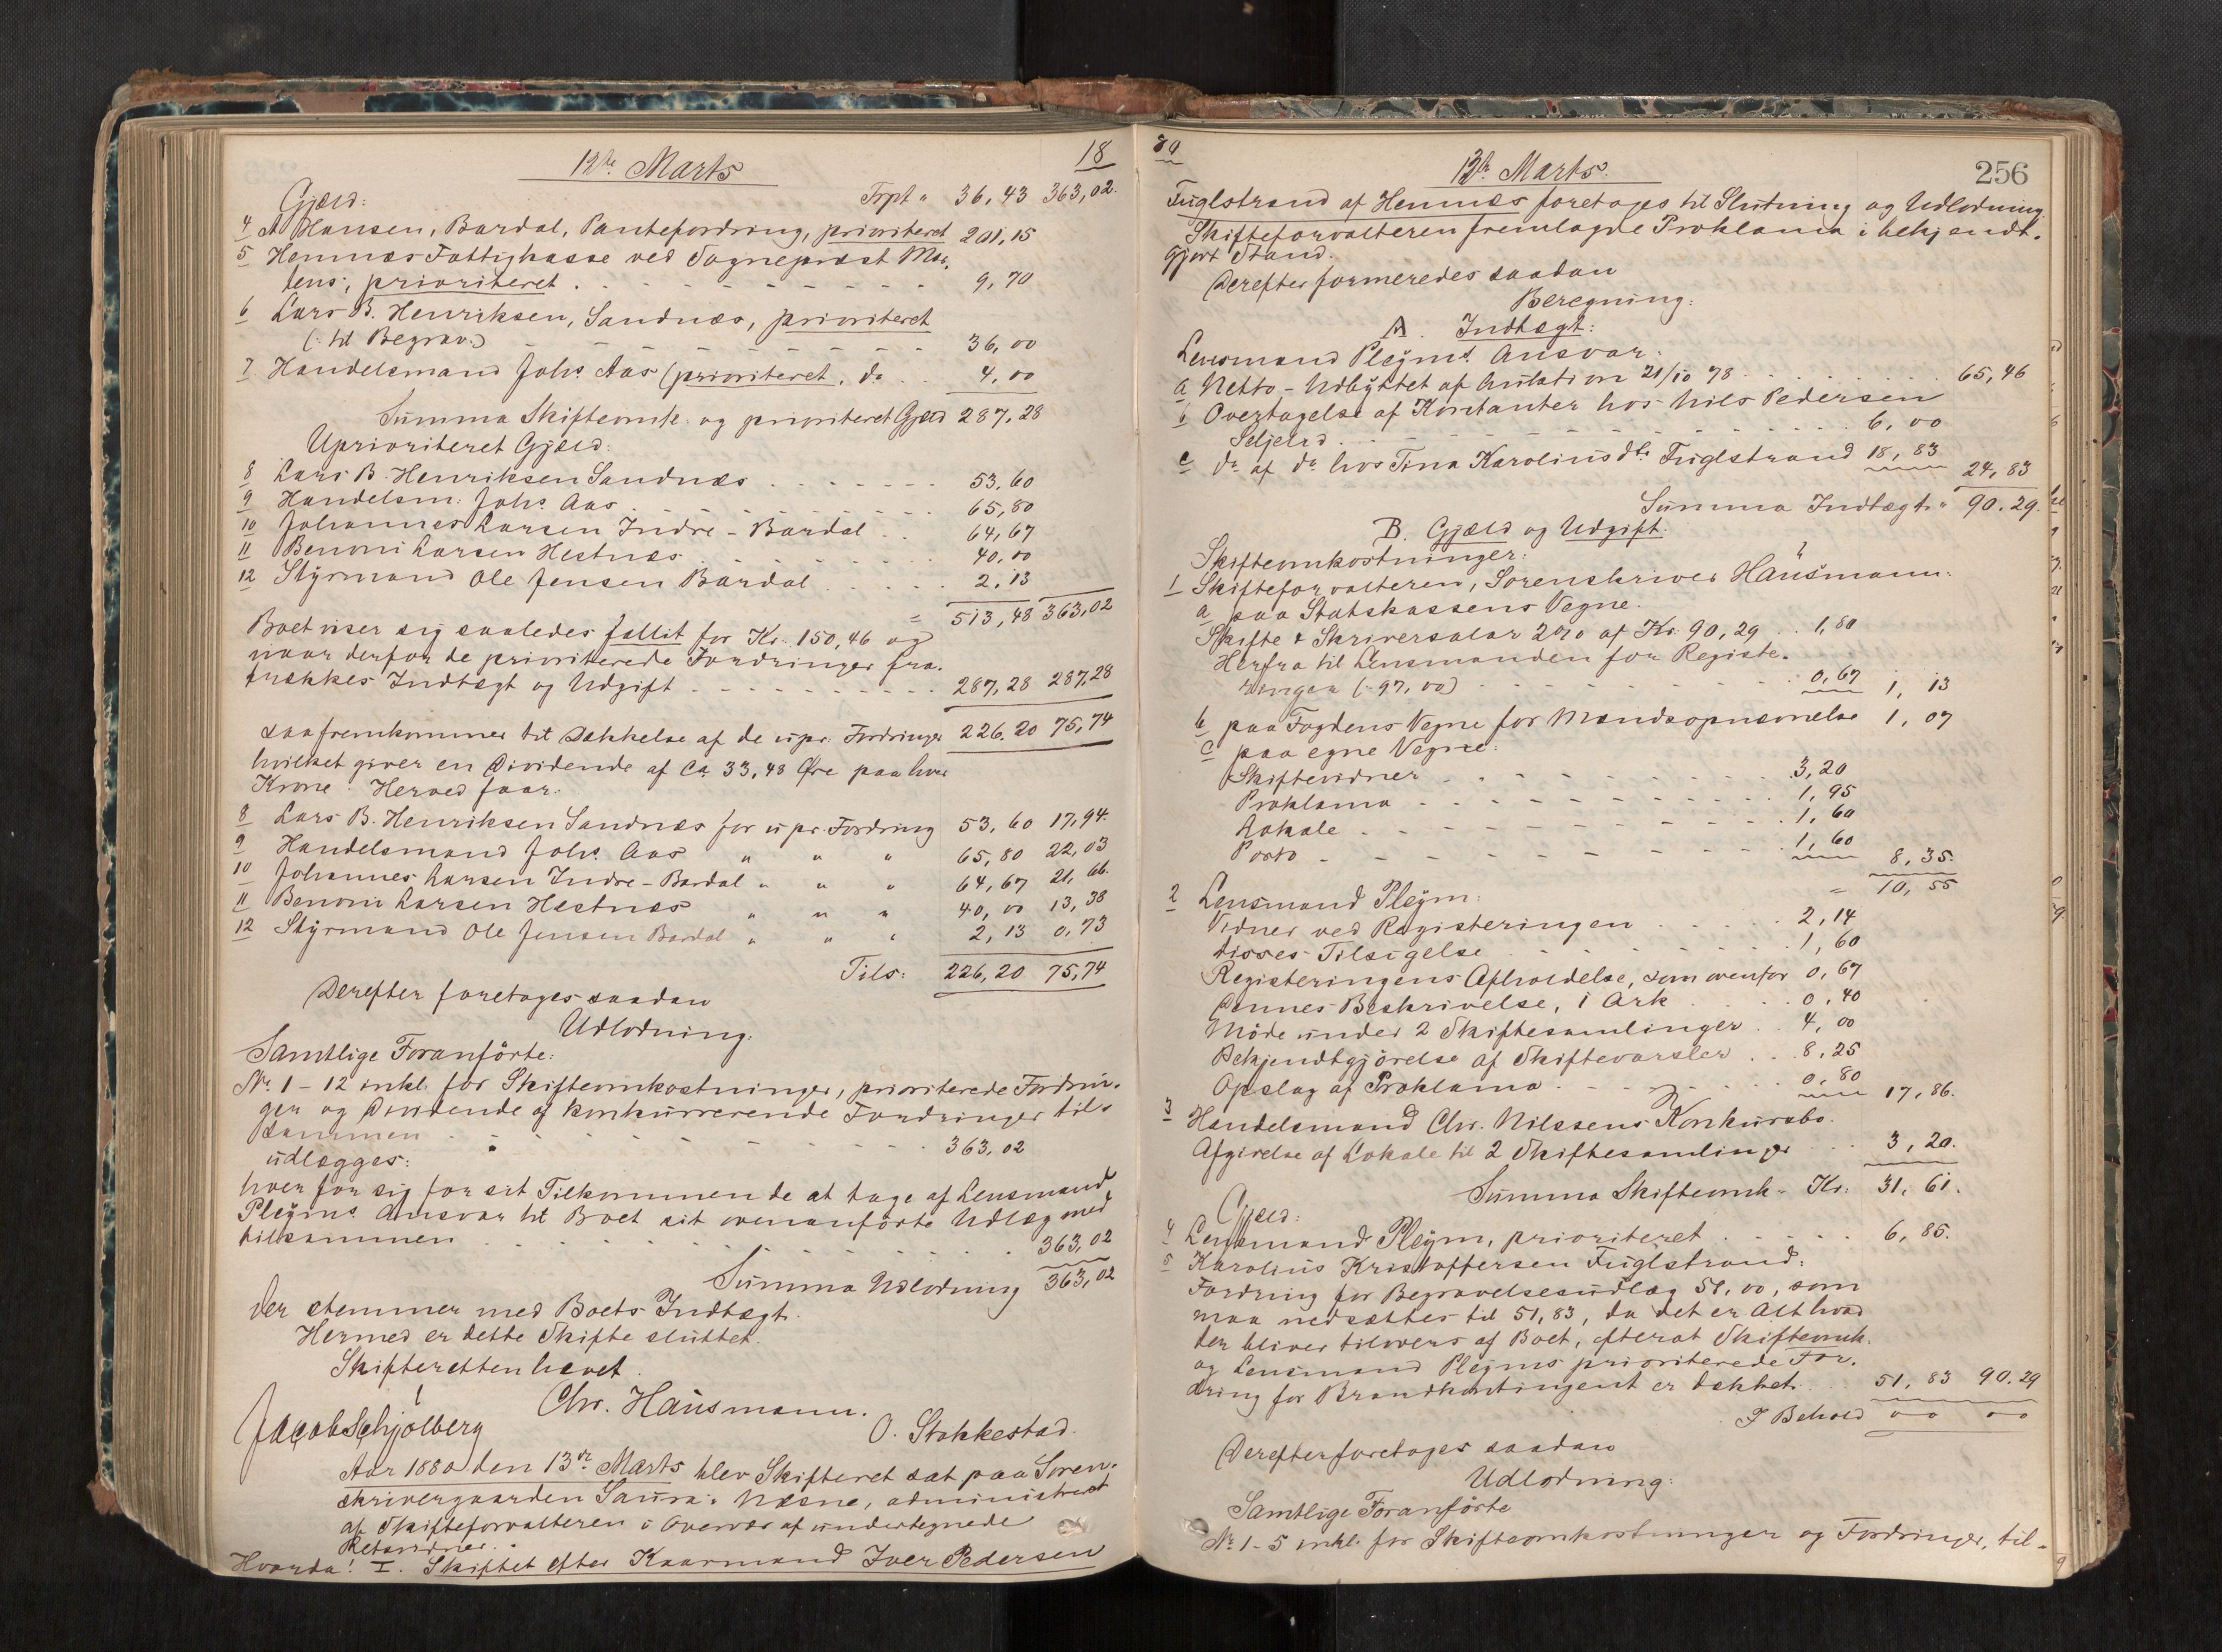 12te Marts
18
Gjæld:
Trpt " 36,43 363,02.
4 A Hansen, Bardal, Pantefordring, prioriteret 201,15
5 Hemnæs Fattigkasse ved Sognepræst Mor-
tens, prioriteret . . . 9,70
6 Lars B. Henriksen, Sandnæs, prioriteret
(: til Begrav:) 36,00
7 Handelsmand Johs Aas (prioriteret. do . . 4,00
Summa Skifteomk. og prioriteret Gjæld 287,28
Uprioriteret Gjæld:
8 Lars B. Henriksen Sandnæs . . . 53,60
9 Handelsm. Johs. Aas . . . 65,80
10 Johannes Larsen Indre-Bardal . . 64,67
11 Benoni Larsen Hestnæs . . . 40,00
12 Styrmand Ole Jensen Bardal . . . 2,13
= 513,48 363,02
Boet viser sig saaledes fallit for Kr. 150,46 og
naar derfor de prioriterede Fordringer fra-
trækkes Indtægt og Udgift . . . 287,28 287,28
saa fremkommer til Dækkelse af de upr. Fordringer 226.20 75,74
hvilket giver en Dividende af Ca 33,48 Øre paa hver
Krone. Herved faar:
8 Lars B. Henriksen Sandnæs for upr. Fordring 53,60 17,94.
9 Handelsmand Johs. Aas " " " 65,80 22,03
10 Johannes Larsen Indre-Bardal " " " 64,67 21,66.
11 Benoni Larsen Hestnæs " " " 40,00 13,38
12 Styrmand Ole Jensen Bardal " " " 2,13 0,73
Tils: 226,20 75,74
Derefter foretoges saadan
Udlodning:
Samtlige Foranførte:
No. 1-12 inkl. for Skifteomkostninger, prioriterede Fordrin-
ger og Dividende af konkurrerende Fordringer til-
sammen . . . 363,02
udlægges:
hver for sig for sit Tilkommende at tage af Lensmand
Pleyms Ansvar til Boet sit ovenanførte Udlæg med
tilsammen . . . 363,02
Summa Udlodning 363,02
der stemmer med Boets Indtægt.
Hermed er dette Skifte sluttet.
Skifteretten hævet.
Chr. Hausmann.
Jacob Schjölberg
O. Stokkestad.
Aar 1880 den 13de Marts blev Skifteret sat paa Soren-
skrivergaarden Saura i Næsne, administreret
af Skifteforvalteren i Overvær af undertegnede
Retsvidner.
Hvorda! I. Skiftet efter Kaarmand Iver Pedersen
80
13de Marts.
256
Fuglstrand af Hemnæs foretoges til Slutning og Udlodning.
Skifteforvalteren fremlagde Proklama i bekjendt-
gjort Stand.
Derefter formeredes saadan
Beregning:
A. Indtægt:
Lensmand Pleyms Ansvar:
a Netto-Udbyttet af Auktion 21/10 78 . . . 65,46
b Overtagelse af Kontanter hos Nils Pedersen
Seljelid . . . 6,00
c do af do hos Tina Karolius dtr. Fuglstrand 18,83
24,83
Summa Indtægt " 90.29.
B. Gjæld og Udgift.
Skifteomkostninger:
1 Skifteforvalteren, Sorenskriver Hausmann:
a paa Statskassens Vegne.
Skifte & Skriversalar 2% af Kr. 90,29 . . 1,80
Herfra til Lensmanden for Registe-
ringen (: 97,00) . . . 0,67 1,13
b paa Fogdens Vegne for Mandsopnævnelse 1,07
c paa egne Vegne:
Skiftevidner . . . 3,20
Proklama . . . 1,95
Lokale . . . 1,60
Porto . . . 1,60
8,35.
= 10,55
2 Lensmand Pleym:
Vidner ved Registeringen . . . 2,14
disses Tilsigelse . . . 1,60
Registeringens Afholdelse, som ovenfor 0,67
Dennes Beskrivelse, 1 Ark . . . 0,40
Møde under 2 Skiftesamlinger . . 4,00
Bekjendtgjørelse af Skiftevarsler . . 8,25
Opslag af Proklama . . . 0,80
17,86.
3 Handelsmand Chr. Nilssens Konkursbo.
Afgivelse af Lokale til 2 Skiftesamlinger . . 3,20.
Summa Skifteomk. Kr. 31,61.
Gjæld:
4 Lensmand Pleym, prioriteret . . . 6,85.
5 Karolius Kristoffersen Fuglstrand:
Fordring for Begravelsesudlæg 51,00, som
maa nedsættes til 51,83, da det er Alt hvad
der bliver tilovers af Boet, efterat Skifteomk.
og Lensmand Pleyms prioriterede For-
dring for Brandkontingent er dækket. . . 51,83 90.29
I Behold 00 00
Derefter foretoges saadan
Udlodning:
Samtlige Foranførte
No 1-5 inkl. for Skifteomkostninger og Fordringer, til-